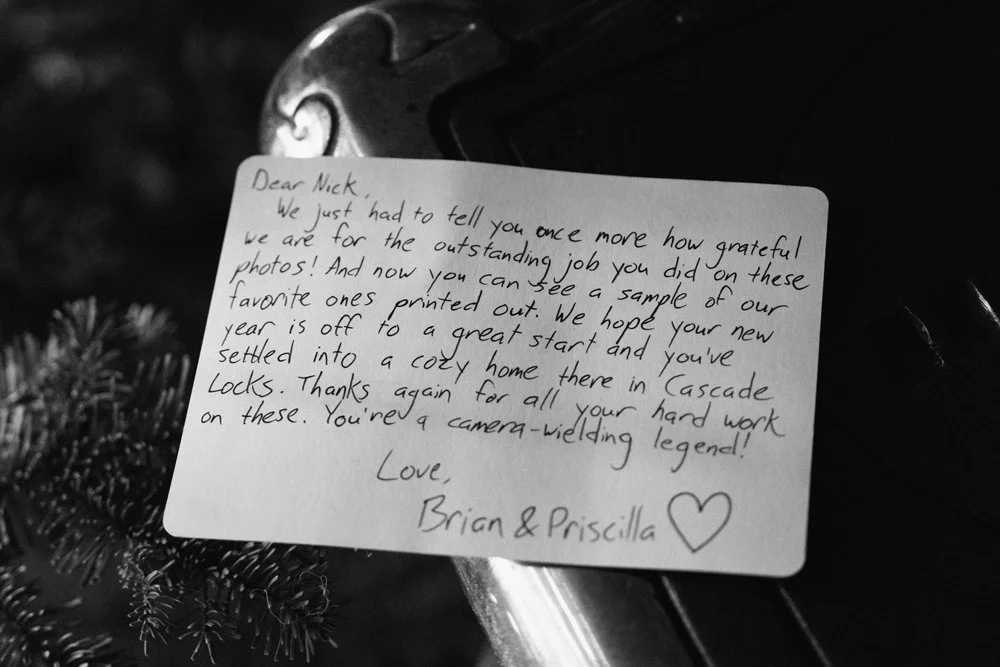 Dear Nick,
We just had to tell you once more how grateful
we are for the outstanding job you did on these
photos! And now you can see a sample of our
favorite ones printed out. We hope your new
year is off to a great start and you've
settled into a cozy home there in Cascade
Locks. Thanks again for all your hard work
on these. You're a camera-wielding legend!
Love,
Brian & Priscilla ♡